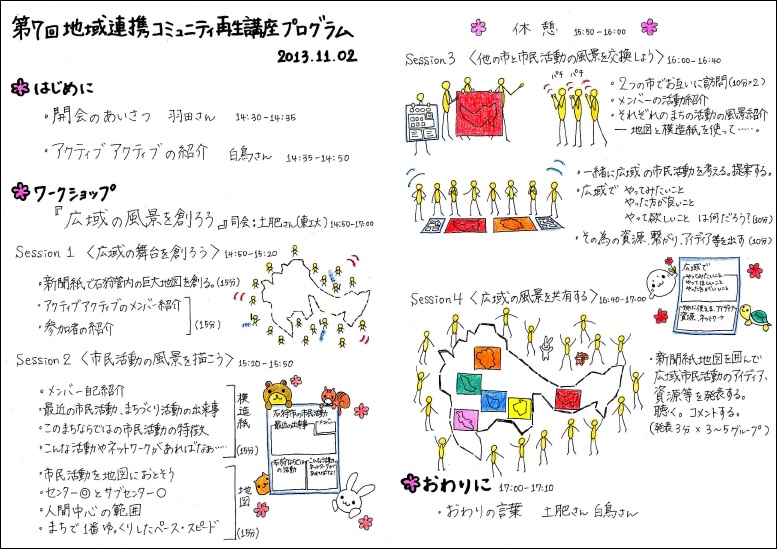 第7回地域連携コミュニティ再生講座プログラム
2013.11.02
はじめに
・開会のあいさつ 羽田さん 14:30-14:35
・アクティブアクティブの紹介 白鳥さん 14:35-14:50
ワークショップ
『広域の風景を創ろう』司会:土肥さん(東工大) 14:50-17:00
Session 1 〈広域の舞台を創ろう〉 14:50-15:20
・新聞紙で石狩管内の巨大地図を創る。(15分)
・アクティブアクティブのメンバー紹介
・参加者の紹介
(15分)
Session 2 〈市民活動の風景を描こう〉 15:20-15:50
・メンバー自己紹介
・最近の市民活動、まちづくり活動の出来事
・このまちならではの市民活動の特徴
・こんな活動やネットワークがあればなぁ・・・・
模造紙
(15分)
・市民活動を地図におとそう
・センター◎とサブセンター○
・人間中心の範囲
・まちで1番ゆっくりしたペース・スピード
地図
(15分)
石狩市の市民活動
最近の出来事
メンバー
石狩ならではの活動
こんな活動、ネットワークがあればなぁ!
休憩 15:50-16:00
Session 3 〈他の市と市民活動の風景を交換しよう〉 16:00-16:40
パチ パチ
・2つの市でお互いに訪問(10分×2)
・メンバーの活動紹介
・それぞれのまちの活動の風景紹介
ー地図と模造紙を使って・・・・・。
・一緒に広域の市民活動を考える。提案する。
・広域で やってみたいこと
やった方が良いこと
やって欲しいこと は何だろう?(10分)
・その為の資源、繋がり、アイディア等を出す(10分)
広域で
やってみたいこと
やってほしいこと
やった方がいいこと
資源、ネットワーク
Session 4 〈広域の風景を共有する〉 16:40-17:00
・新聞紙地図を囲んで
広域市民活動のアイディア、
資源等を発表する。
聴く。コメントする。
(発表3分×3~5グループ)
おわりに 17:00-17:10
・おわりの言葉 土肥さん 白鳥さん